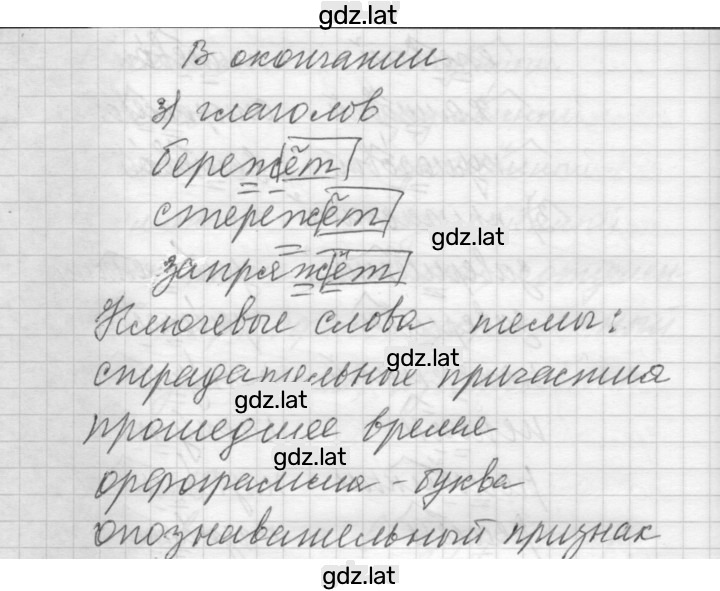 gdz.lat
В окончании
3) глаголов
бережёт
стережёт
gdz.lat
запряжёт
Ключевые слова темы:
gdz.lat
страдательные причастия
gdz.lat
прошедшее время
gdz.lat
орфограмма - буква
опознавательный признак
gdz.lat